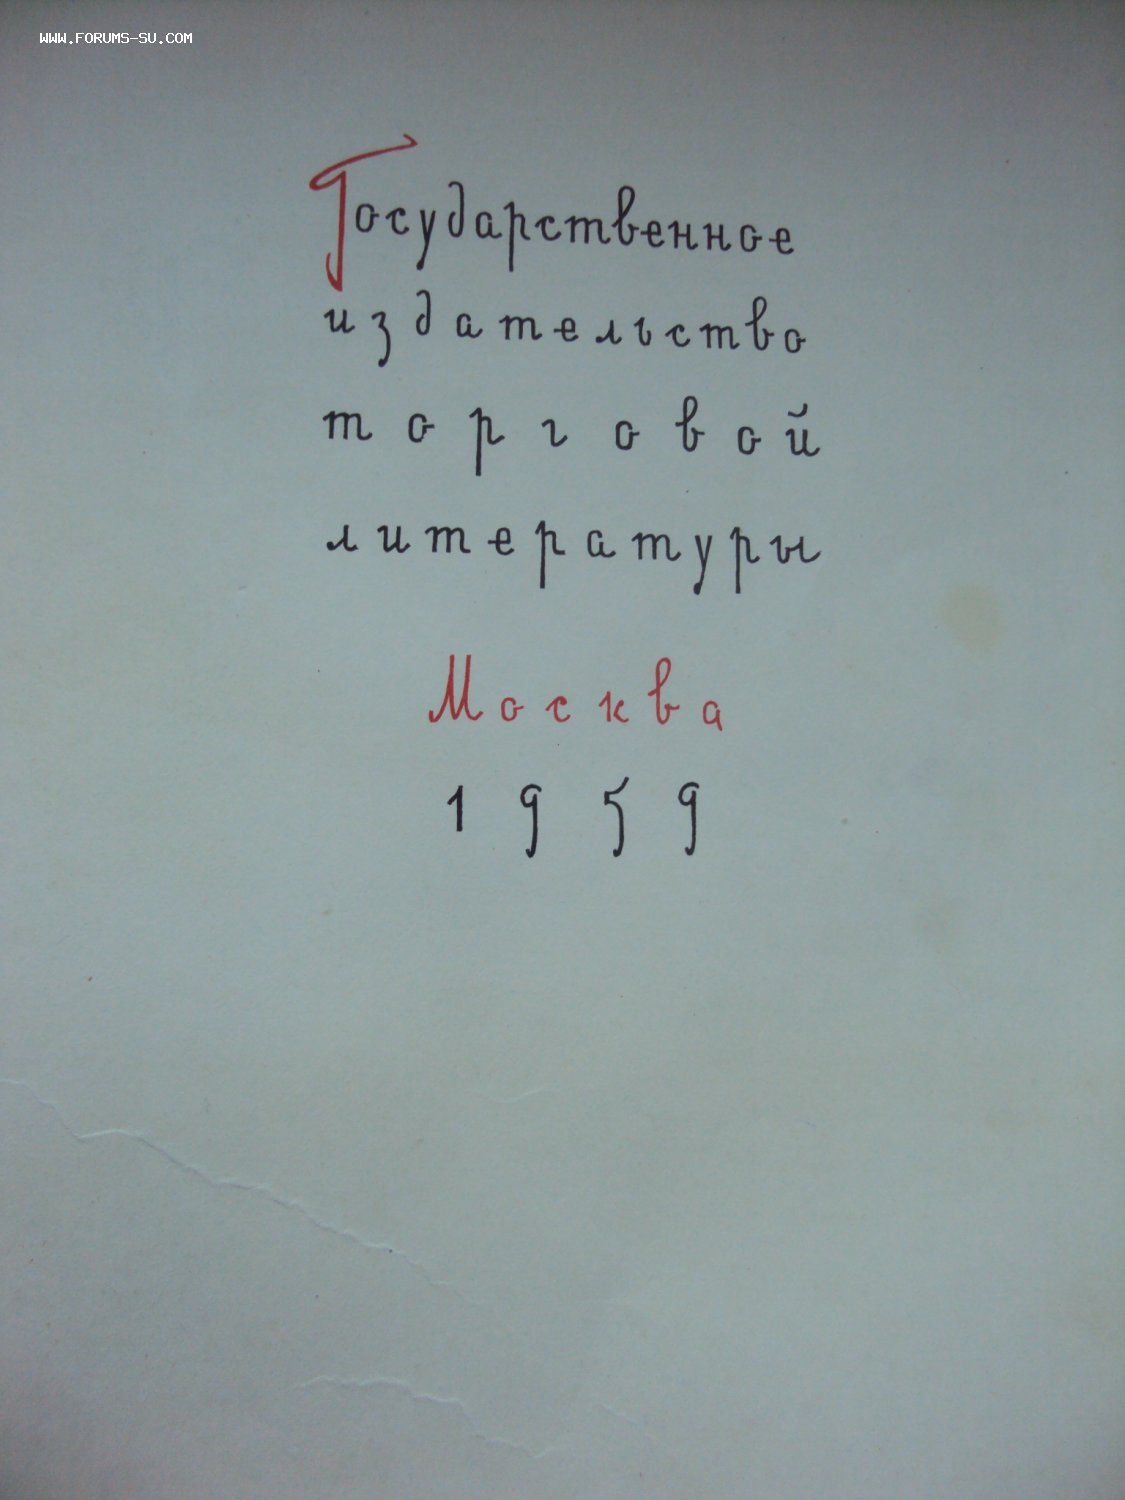 WWW.FORUMS-SU.COM
Государственное
издательство
торговой
литературы
Москва
1959